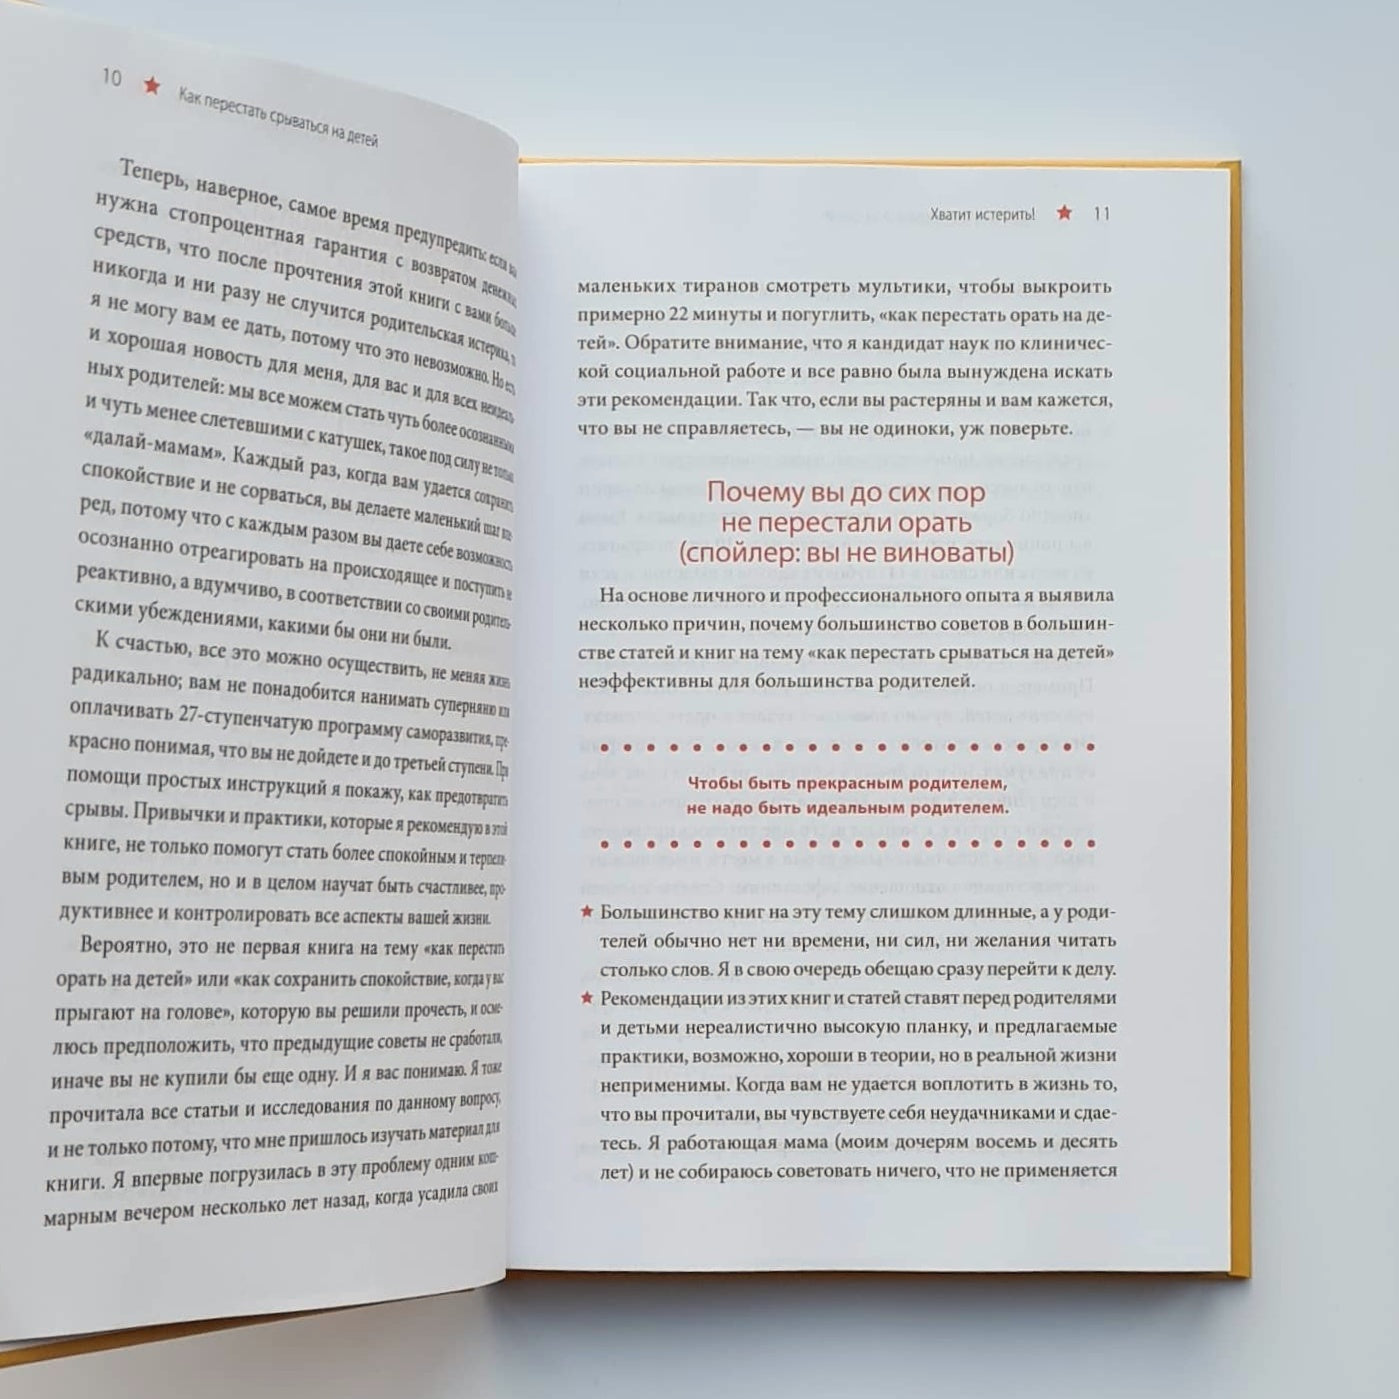 10 ★ Как перестать срываться на детей
Теперь, наверное, самое время предупредить: если вам
нужна стопроцентная гарантия с возвратом денежных
средств, что после прочтения этой книги с вами больше
никогда и ни разу не случится родительская истерика,
я не могу вам ее дать, потому что это невозможно. Но есть
и хорошая новость для меня, для вас и для всех неидеаль-
ных родителей: мы все можем стать чуть более осознанными
и чуть менее слетевшими с катушек, такое под силу не только
«далай-мамам». Каждый раз, когда вам удается сохранить
спокойствие и не сорваться, вы делаете маленький шаг впе-
ред, потому что с каждым разом вы даете себе возможность
осознанно отреагировать на происходящее и поступить не
реактивно, а вдумчиво, в соответствии со своими родитель-
скими убеждениями, какими бы они ни были.
К счастью, все это можно осуществить, не меняя жизнь
радикально; вам не понадобится нанимать суперняню или
оплачивать 27-ступенчатую программу саморазвития, пре-
красно понимая, что вы не дойдете и до третьей ступени. При
помощи простых инструкций я покажу, как предотвратить
срывы. Привычки и практики, которые я рекомендую в этой
книге, не только помогут стать более спокойным и терпели-
вым родителем, но и в целом научат быть счастливее, про-
дуктивнее и контролировать все аспекты вашей жизни.
Вероятно, это не первая книга на тему «как перестать
орать на детей» или «как сохранить спокойствие, когда у вас
прыгают на голове», которую вы решили прочесть, и осме-
люсь предположить, что предыдущие советы не сработали,
иначе вы не купили бы еще одну. И я вас понимаю. Я тоже
прочитала все статьи и исследования по данному вопросу,
и не только потому, что мне пришлось изучать материал для
книги. Я впервые погрузилась в эту проблему одним кош-
марным вечером несколько лет назад, когда усадила своих
Хватит истерить! ★ 11
маленьких тиранов смотреть мультики, чтобы выкроить
примерно 22 минуты и погуглить, «как перестать орать на де-
тей». Обратите внимание, что я кандидат наук по клиничес-
кой социальной работе и все равно была вынуждена искать
эти рекомендации. Так что, если вы растеряны и вам кажется,
что вы не справляетесь, — вы не одиноки, уж поверьте.
Почему вы до сих пор
не перестали орать
(спойлер: вы не виноваты)
На основе личного и профессионального опыта я выявила
несколько причин, почему большинство советов в большин-
стве статей и книг на тему «как перестать срываться на детей»
неэффективны для большинства родителей.
Чтобы быть прекрасным родителем,
не надо быть идеальным родителем.
★ Большинство книг на эту тему слишком длинные, а у роди-
телей обычно нет ни времени, ни сил, ни желания читать
столько слов. Я в свою очередь обещаю сразу перейти к делу.
★ Рекомендации из этих книг и статей ставят перед родителями
и детьми нереалистично высокую планку, и предлагаемые
практики, возможно, хороши в теории, но в реальной жизни
неприменимы. Когда вам не удается воплотить в жизнь то,
что вы прочитали, вы чувствуете себя неудачниками и сдае-
тесь. Я работающая мама (моим дочерям восемь и десять
лет) и не собираюсь советовать ничего, что не применяется